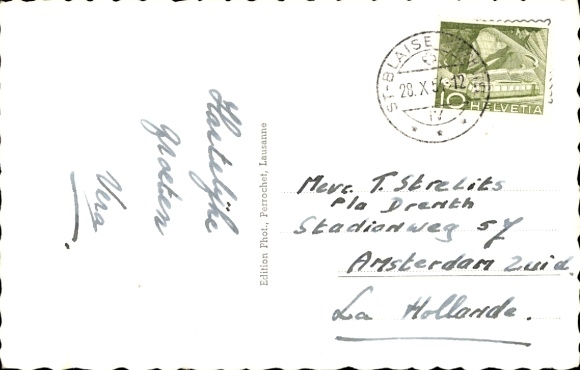 Hartelijke
groeten
Vera.
Edition Phot., Perrochet, Lausanne
ST-BLAISE
28.X.5
-12
IV
10 HELVETIA
Mevr. T. Strelits
p/a Drenth
Stadionweg 57
Amsterdam Zuid.
La Hollande.